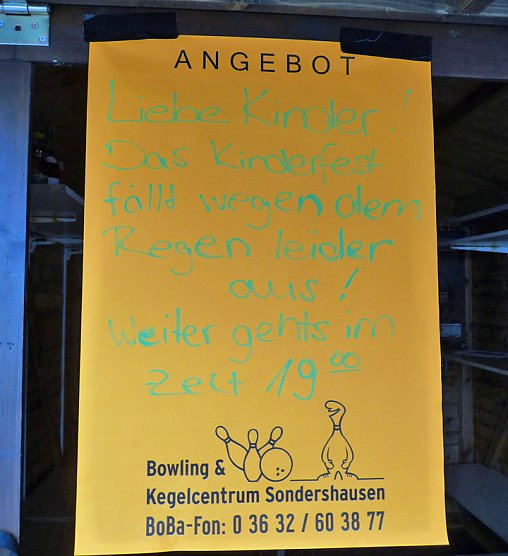 ANGEBOT
Liebe Kinder!
Das Kinderfest
fällt wegen dem
Regen leider
aus!
Weiter gehts im
Zelt 19 00
Bowling &
Kegelcentrum Sondershausen
BoBa-Fon: 0 36 32 / 60 38 77